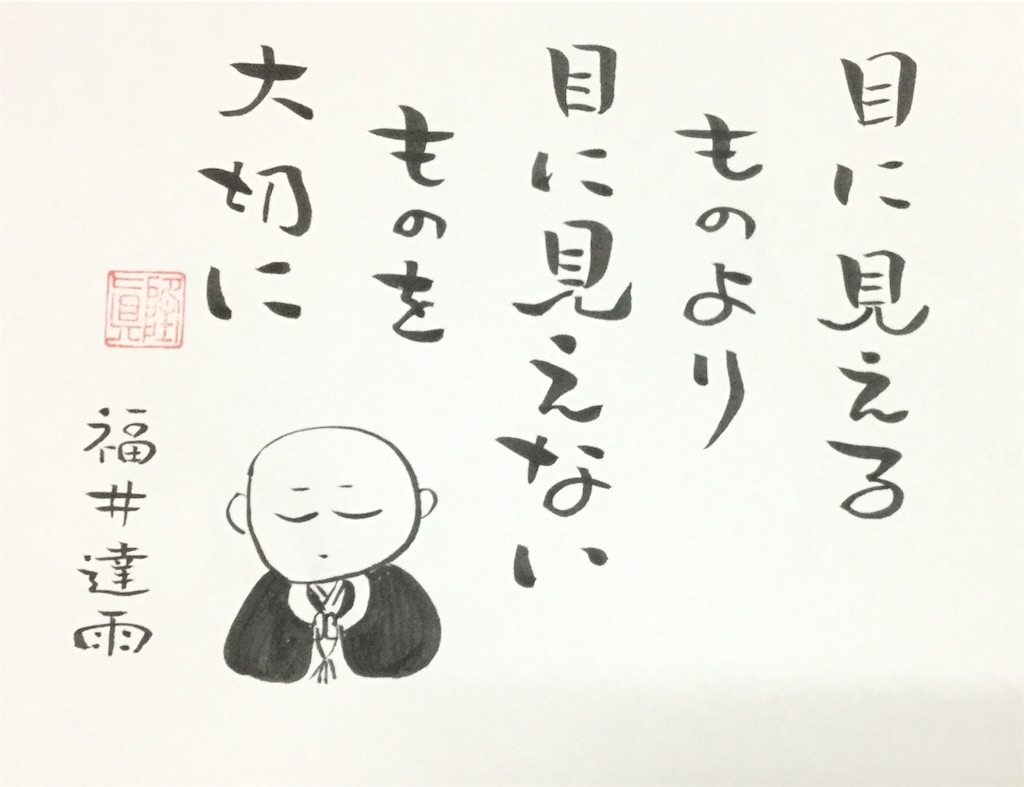 目に見える
ものより
目に見えない
ものを
大切に
福井達雨